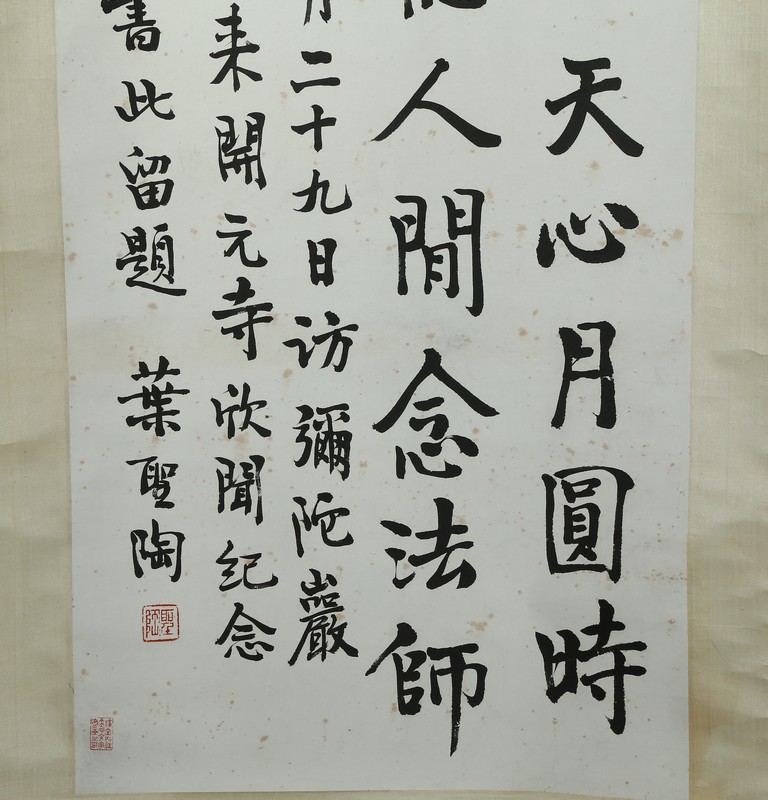 天心月圓時
人間念法師
月二十九日访彌陀巖
来開元寺欣聞纪念
書此留題 葉聖陶
聖陶